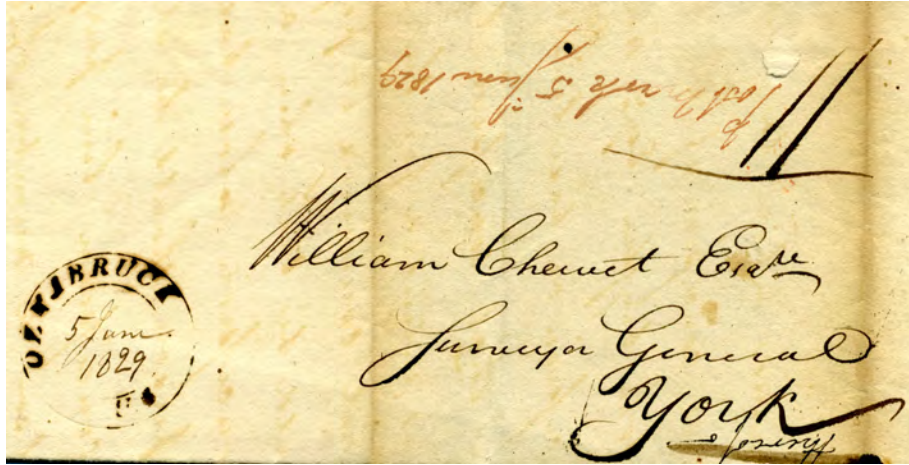 5 June 1829
11
William Chewet Esqre
Surveyor General
York
OZNABRUCK
5 June
1829